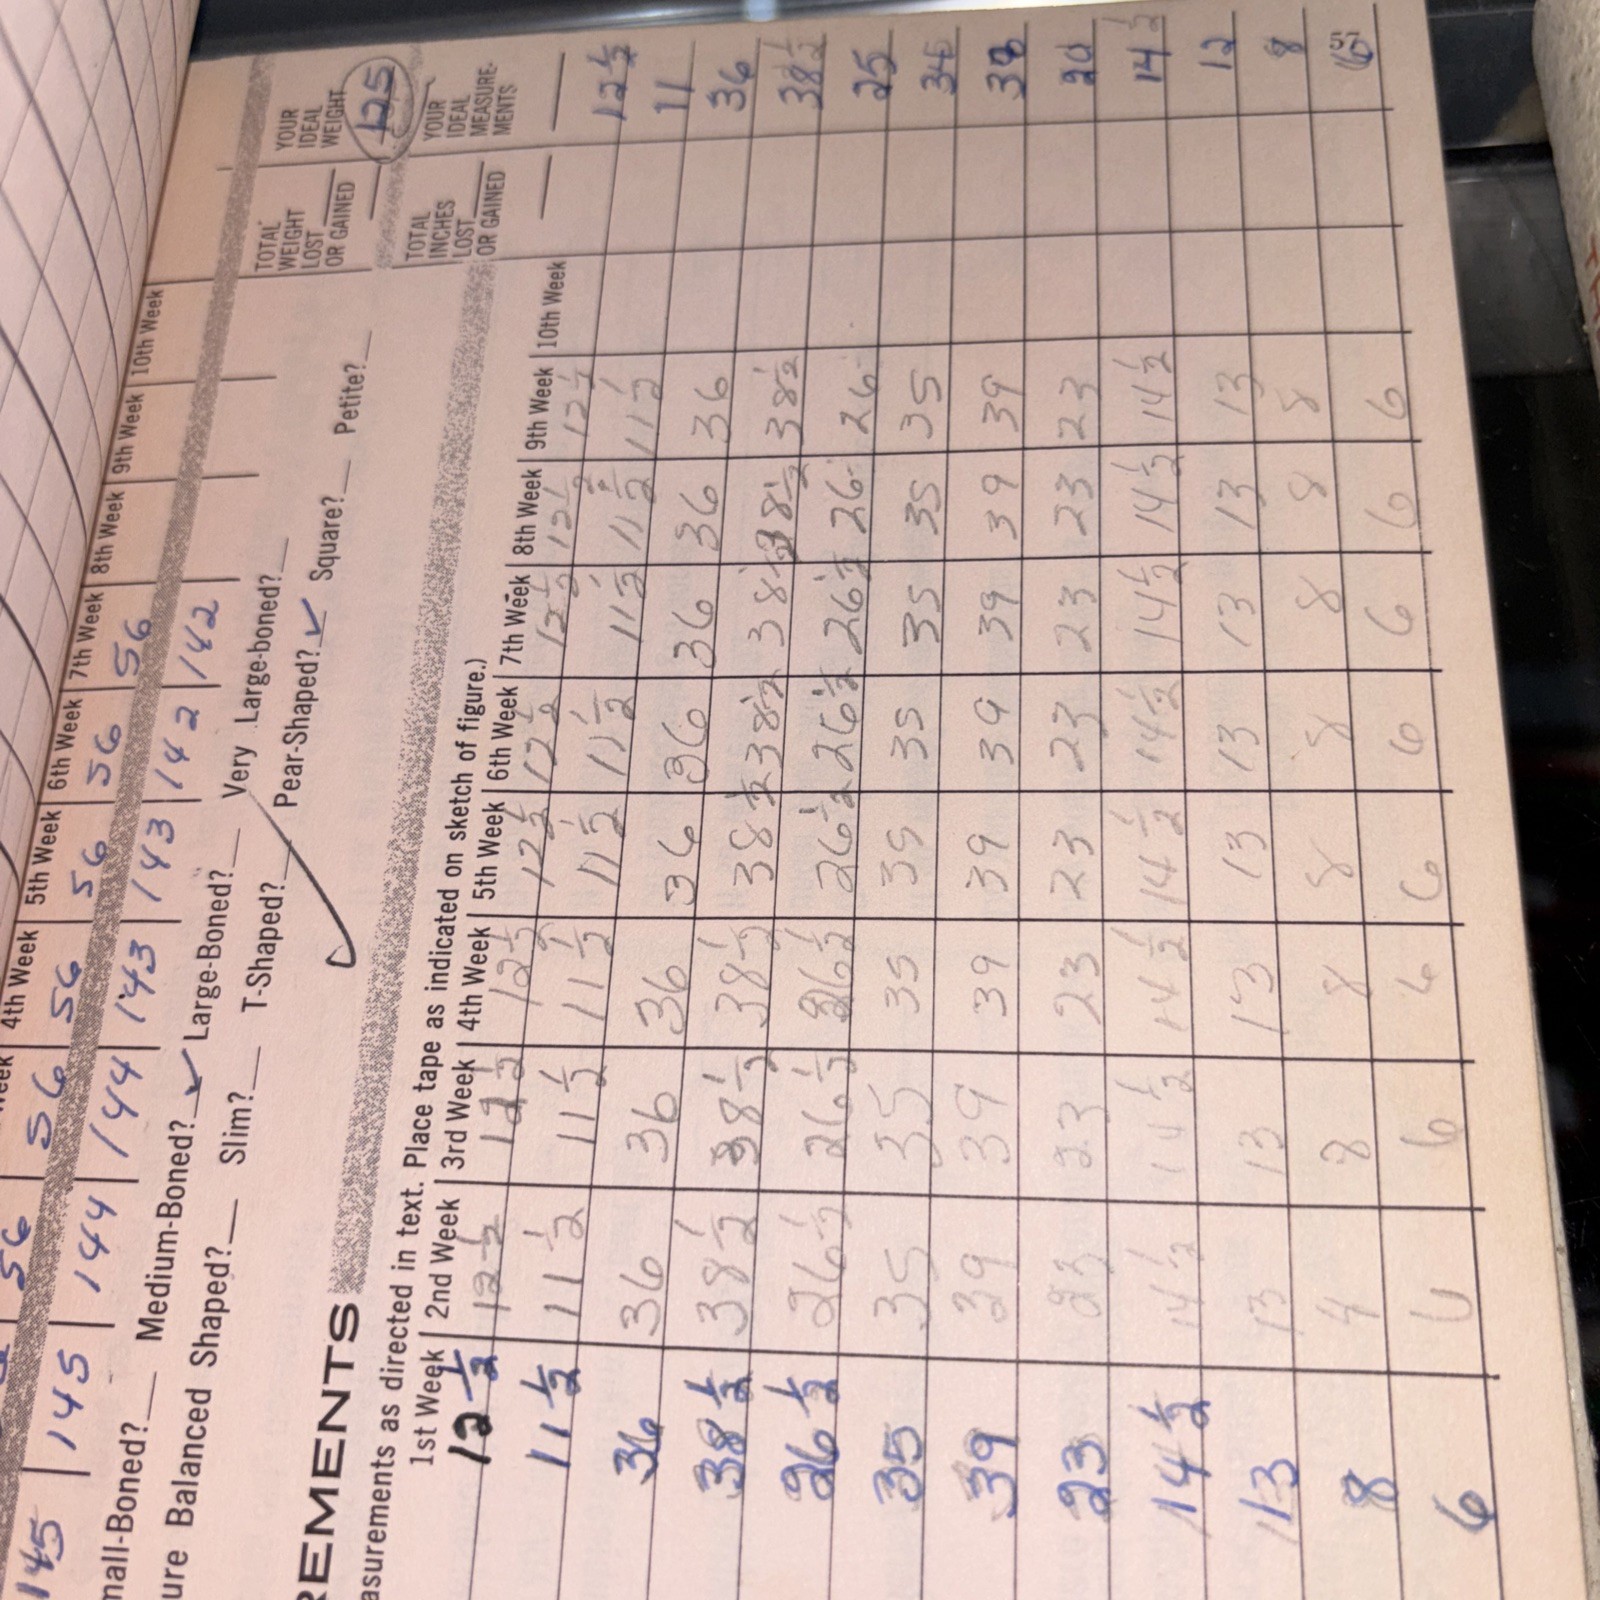 4th Week 5th Week 6th Week 7th Week 8th Week 9th Week 10th Week
56 56 56 56 56 56
145 145 144 144 143 143 142 142
TOTAL WEIGHT LOST OR GAINED
YOUR IDEAL WEIGHT
125
Medium-Boned? ✓ Large-Boned? Very Large-boned?
Balanced Shaped? Slim? T-Shaped? Pear-Shaped? ✓ Square? Petite?
TOTAL INCHES LOST OR GAINED
YOUR IDEAL MEASUREMENTS
as directed in text. Place tape as indicated on sketch of figure.)
1st Week 2nd Week 3rd Week 4th Week 5th Week 6th Week 7th Week 8th Week 9th Week 10th Week
12 1/2 12 1/2 12 1/2 12 1/2 12 1/2 12 1/2 12 1/2 12 1/2 12 1/2 12 1/2
11 1/2 11 1/2 11 1/2 11 1/2 11 1/2 11 1/2 11 1/2 11 1/2 11 1/2 11
36 36 36 36 36 36 36 36 36 36
38 1/2 38 1/2 38 1/2 38 1/2 38 1/2 38 1/2 38 1/2 38 1/2 38 1/2 38 1/2
26 1/2 26 1/2 26 1/2 26 1/2 26 1/2 26 1/2 26 1/2 26 26 25
35 35 35 35 35 35 35 35 35
39 39 39 39 39 39 39 39 39
23 23 23 23 23 23 23 23 23 20
14 1/2 14 1/2 14 1/2 14 1/2 14 1/2 14 1/2 14 1/2 14 1/2 14 1/2 14 1/2
13 13 13 13 13 13 13 13 13 12
8 8 8 8 8 8 8 8 8
6 6 6 6 6 6 6 6 6